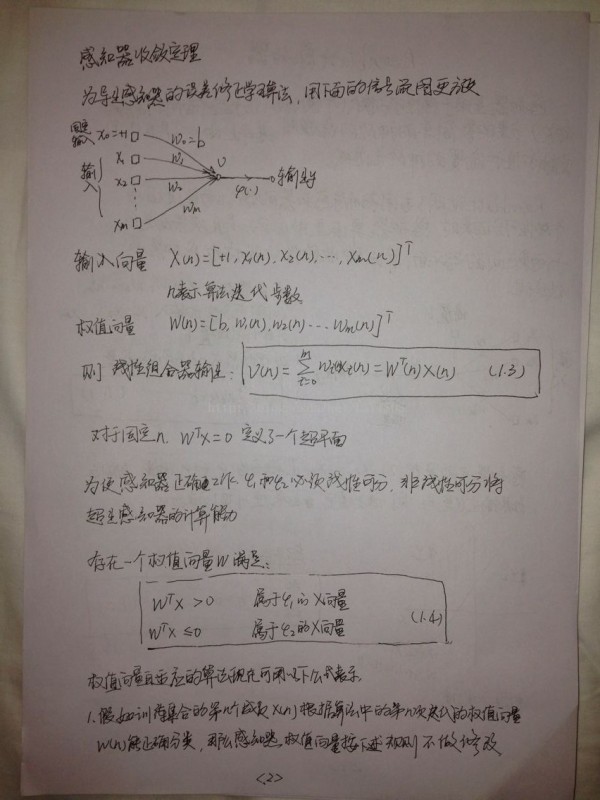 感知器收敛定理
为导出感知器的误差修正学习算法，用下面的信号流图更方便
固定输入 x₀=+1 w₀=b
x₁ w₁ v
输入 x₂ w₂ φ(·) 输出y
xm wm
输入向量 X(n)=[+1, x₁(n), x₂(n), ..., xm(n)]ᵀ
n表示算法迭代步数
权值向量 W(n)=[b, w₁(n), w₂(n) ... wm(n)]ᵀ
则 线性组合器输出: V(n)=∑_{i=0}^{m} wᵢ(n)xᵢ(n)=Wᵀ(n)X(n) (1.3)
对于固定n, WᵀX=0 定义了一个超平面
为使感知器正确工作, φ₁和φ₂必须线性可分, 非线性可分将
超出感知器的计算能力
存在一个权值向量W满足:
WᵀX >0 属于φ₁的X向量
WᵀX ≤0 属于φ₂的X向量 (1.4)
权值向量自适应的算法现在可用以下公式表示
1. 假如训练集合的第n个成员X(n)根据算法中的第n次迭代的权值向量
W(n)能正确分类, 那么感知器权值向量按下述规则不做修改
<2>